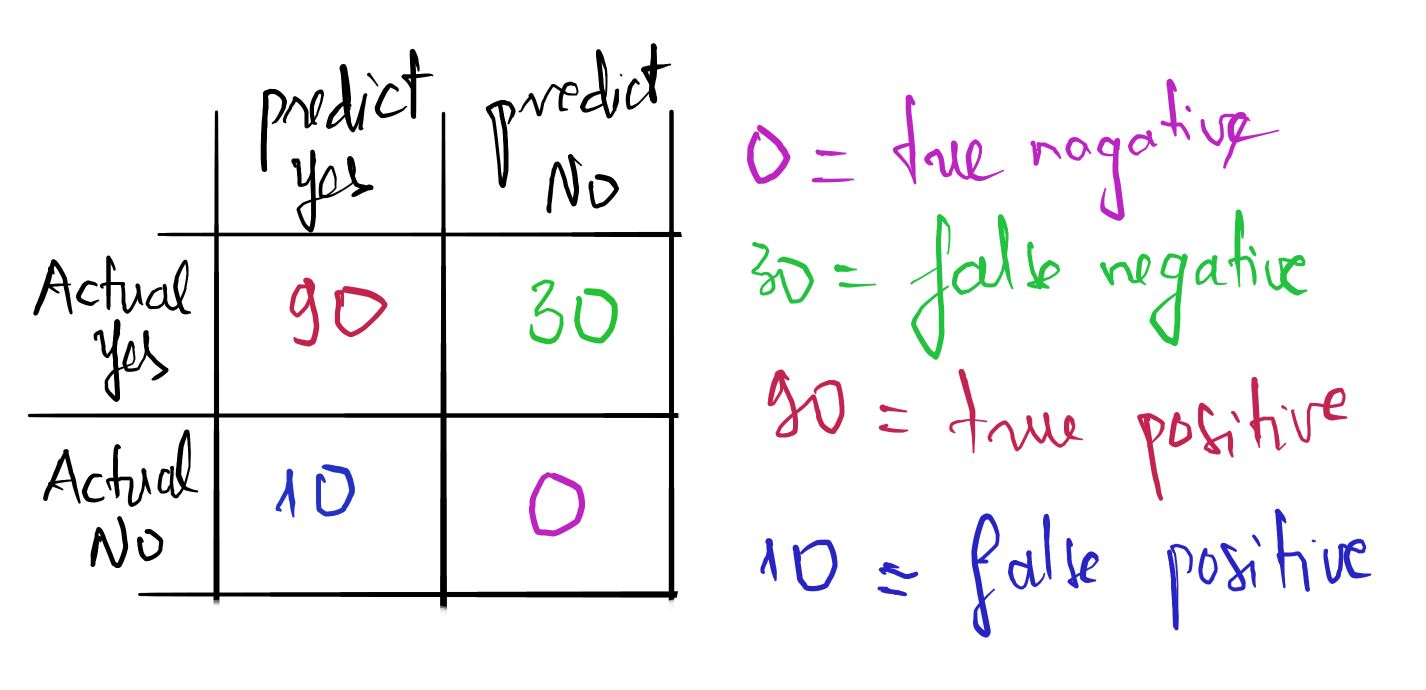 predict predict
yes No
Actual 90 30
yes
Actual 10 0
No
0 = true nagative
30 = false negative
90 = true positive
10 = false positive